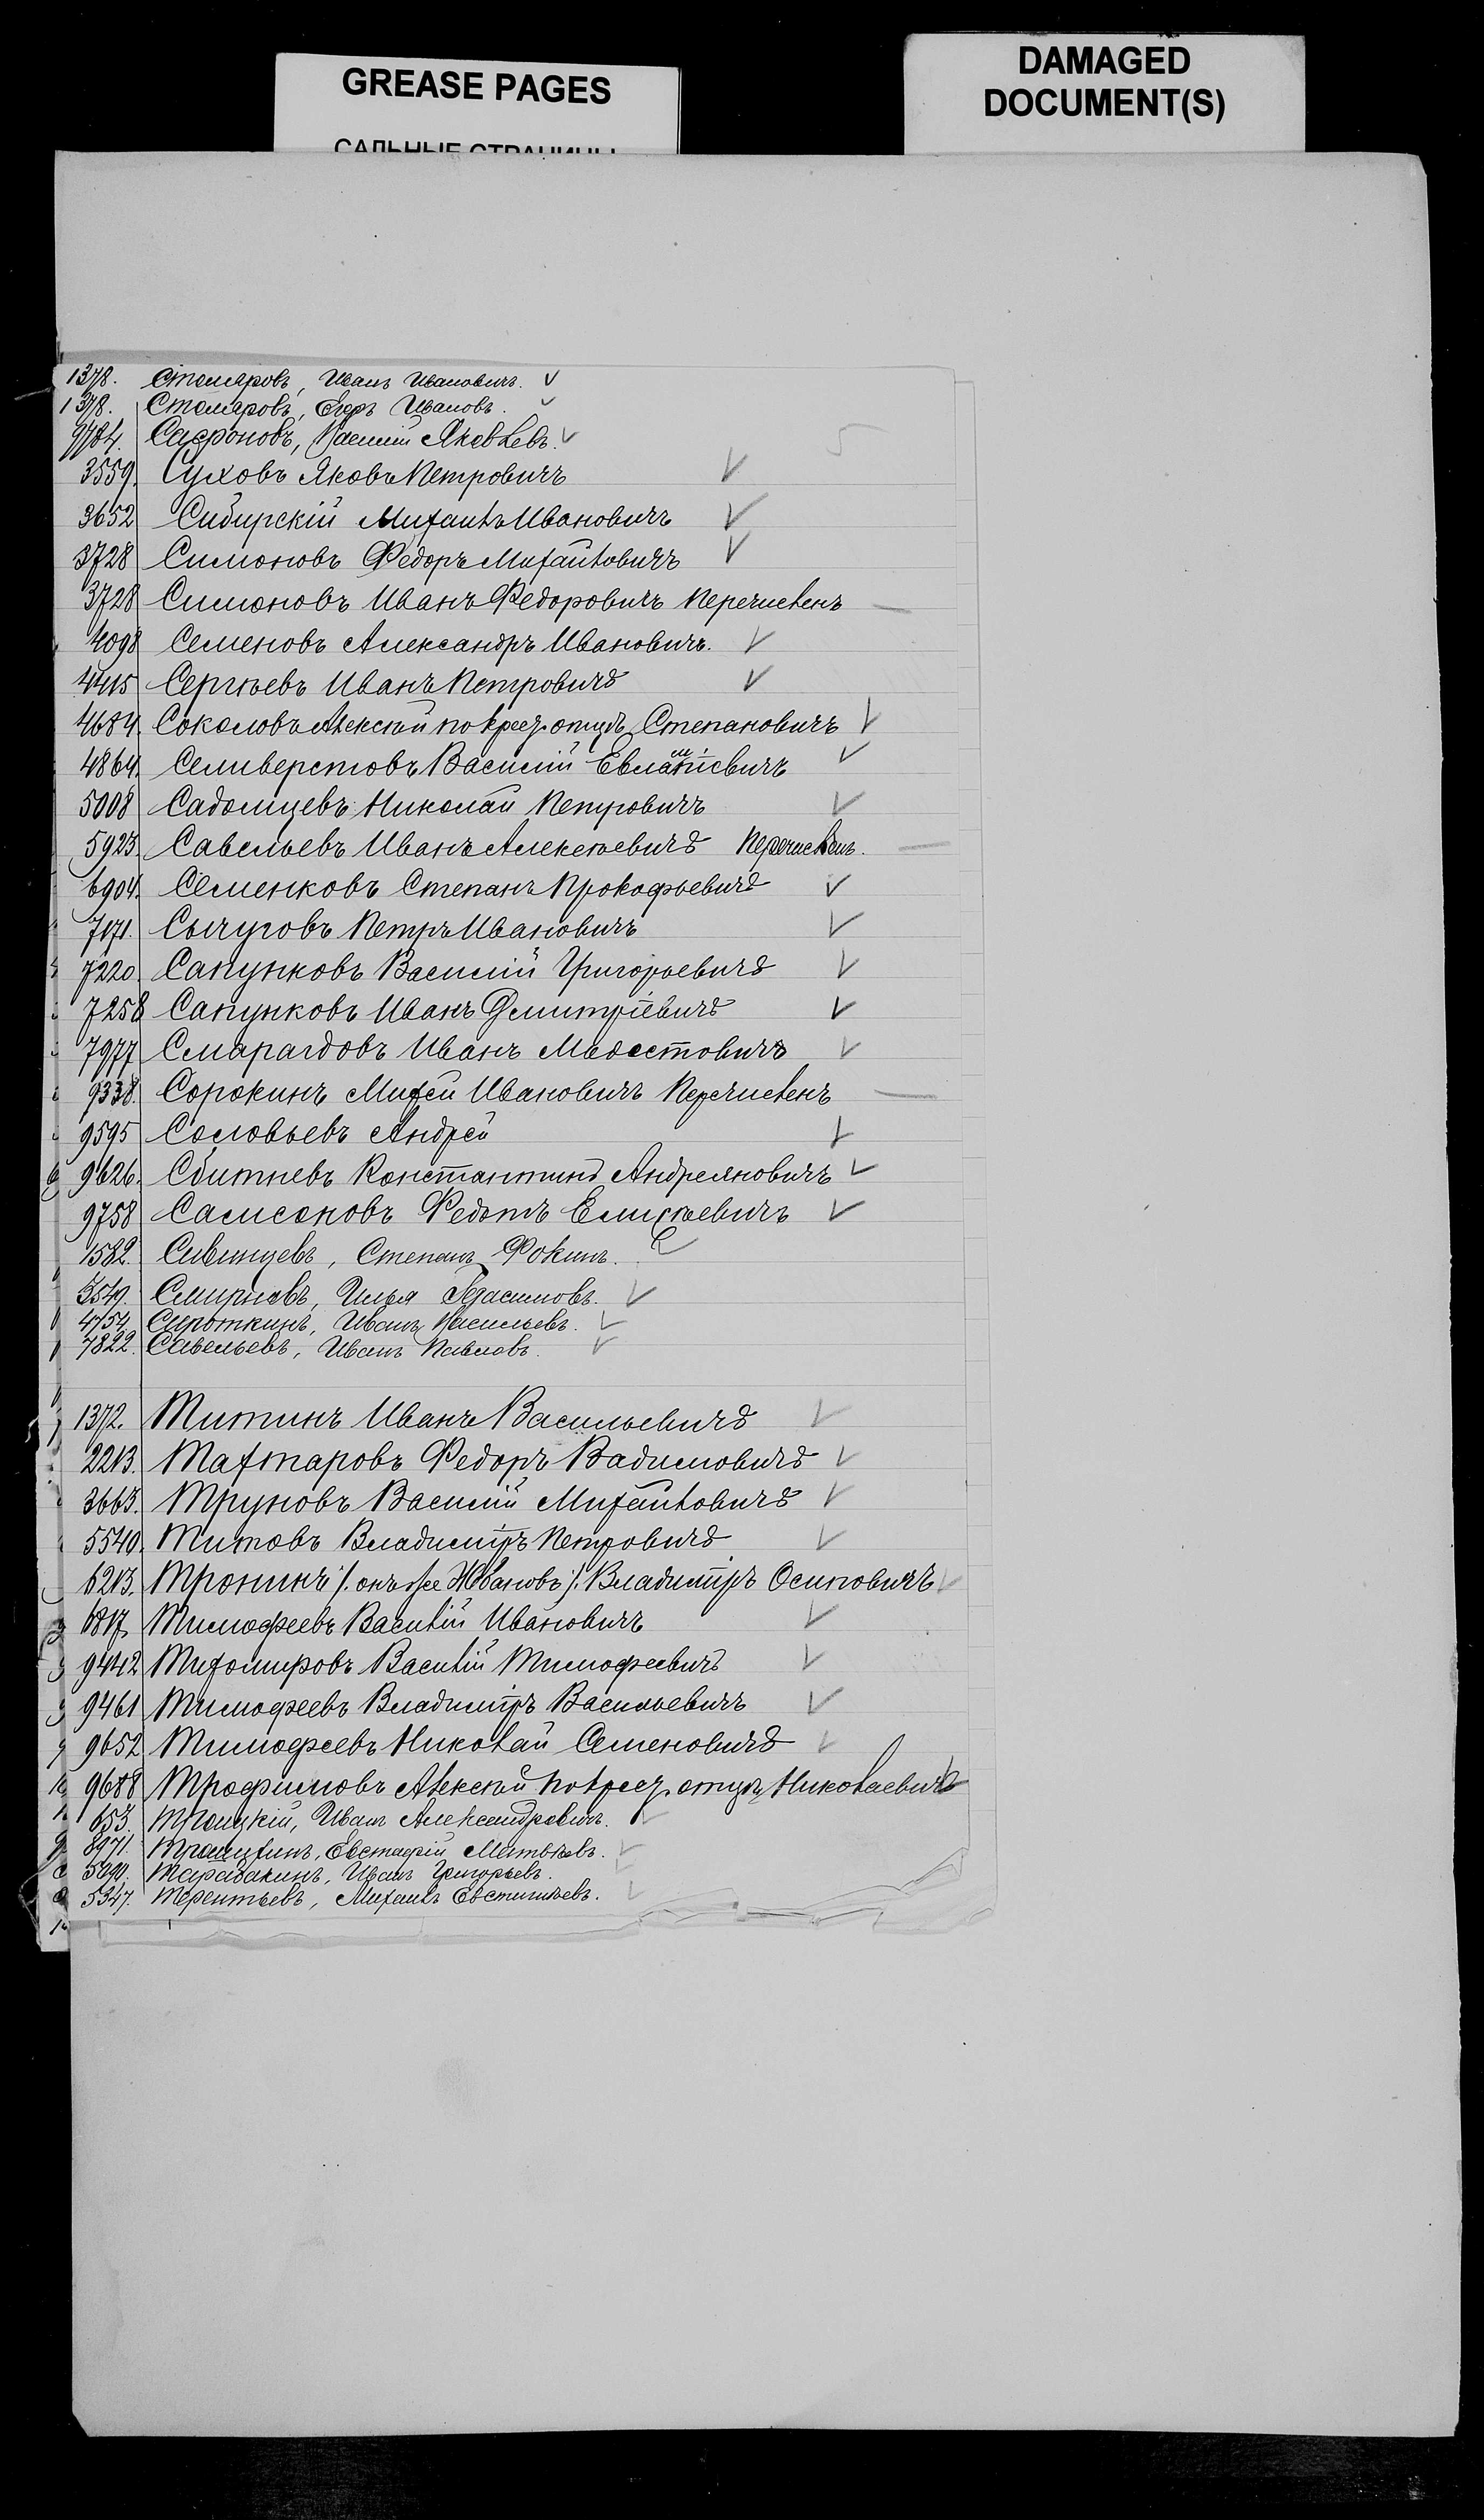 GREASE PAGES
САЛЬНЫЕ СТРАНИЦЫ
DAMAGED
DOCUMENT(S)
1378. Столяровъ, Иванъ Ивановичъ. ✓
1378. Столяровъ, Егоръ Ивановъ. ✓
9784. Сафроновъ, Василій Яковлевъ. ✓
3559. Суховъ Яковъ Петровичъ ✓
3652 Сибирскій Михаилъ Ивановичъ ✓
3728 Симоновъ Федоръ Михайловичъ ✓
3728 Симоновъ Иванъ Федоровичъ перечисленъ —
4098 Семеновъ Александръ Ивановичъ. ✓
4415 Сергѣевъ Иванъ Петровичъ ✓
4684. Соколовъ Алексѣй по крест. отцу Степановичъ ✓
4864. Селиверстовъ Василій Евлампіевичъ ✓
5008 Садомцевъ Николай Петровичъ ✓
5923. Савельевъ Иванъ Алексѣевичъ перечисленъ. —
6904. Семенковъ Степанъ Прокофьевичъ ✓
7171. Сычуговъ Петръ Ивановичъ ✓
7220. Сапунковъ Василій Григорьевичъ ✓
7258 Сапунковъ Иванъ Дмитріевичъ ✓
7977 Смарагдовъ Иванъ Модестовичъ ✓
9338. Сорокинъ Михей Ивановичъ перечисленъ —
9595 Соловьевъ Андрей ✓
9626. Сбитневъ Константинъ Андреяновичъ ✓
9758 Самсоновъ Федотъ Елисѣевичъ ✓
1582. Сивинцевъ, Степанъ Фокинъ. ✓
3549. Смирновъ, Илья Герасимовъ. ✓
4754. Сироткинъ, Иванъ Васильевъ. ✓
7822. Савельевъ, Иванъ Павловъ. ✓
1372. Титинъ Иванъ Васильевичъ ✓
2213. Тахтаровъ Федоръ Вадимовичъ ✓
3663. Труновъ Василій Михайловичъ ✓
5540. Титовъ Владиміръ Петровичъ ✓
6213. Тронинъ /. онъ же Жвановъ ./ Владиміръ Осиповичъ ✓
6817. Тимофеевъ Василій Ивановичъ ✓
9442 Тихомировъ Василій Тимофеевичъ ✓
9461 Тимофеевъ Владиміръ Васильевичъ ✓
9652 Тимофеевъ Николай Семеновичъ ✓
9688 Трофимовъ Алексѣй по крест. отцу Николаевичъ ✓
653. Троицкій, Иванъ Александровичъ. ✓
8971. Евстафій Матвѣевъ. ✓
Тарабакинъ, Иванъ Григорьевъ. ✓
5347. Терентьевъ, Михаилъ Евстигнѣевъ. ✓